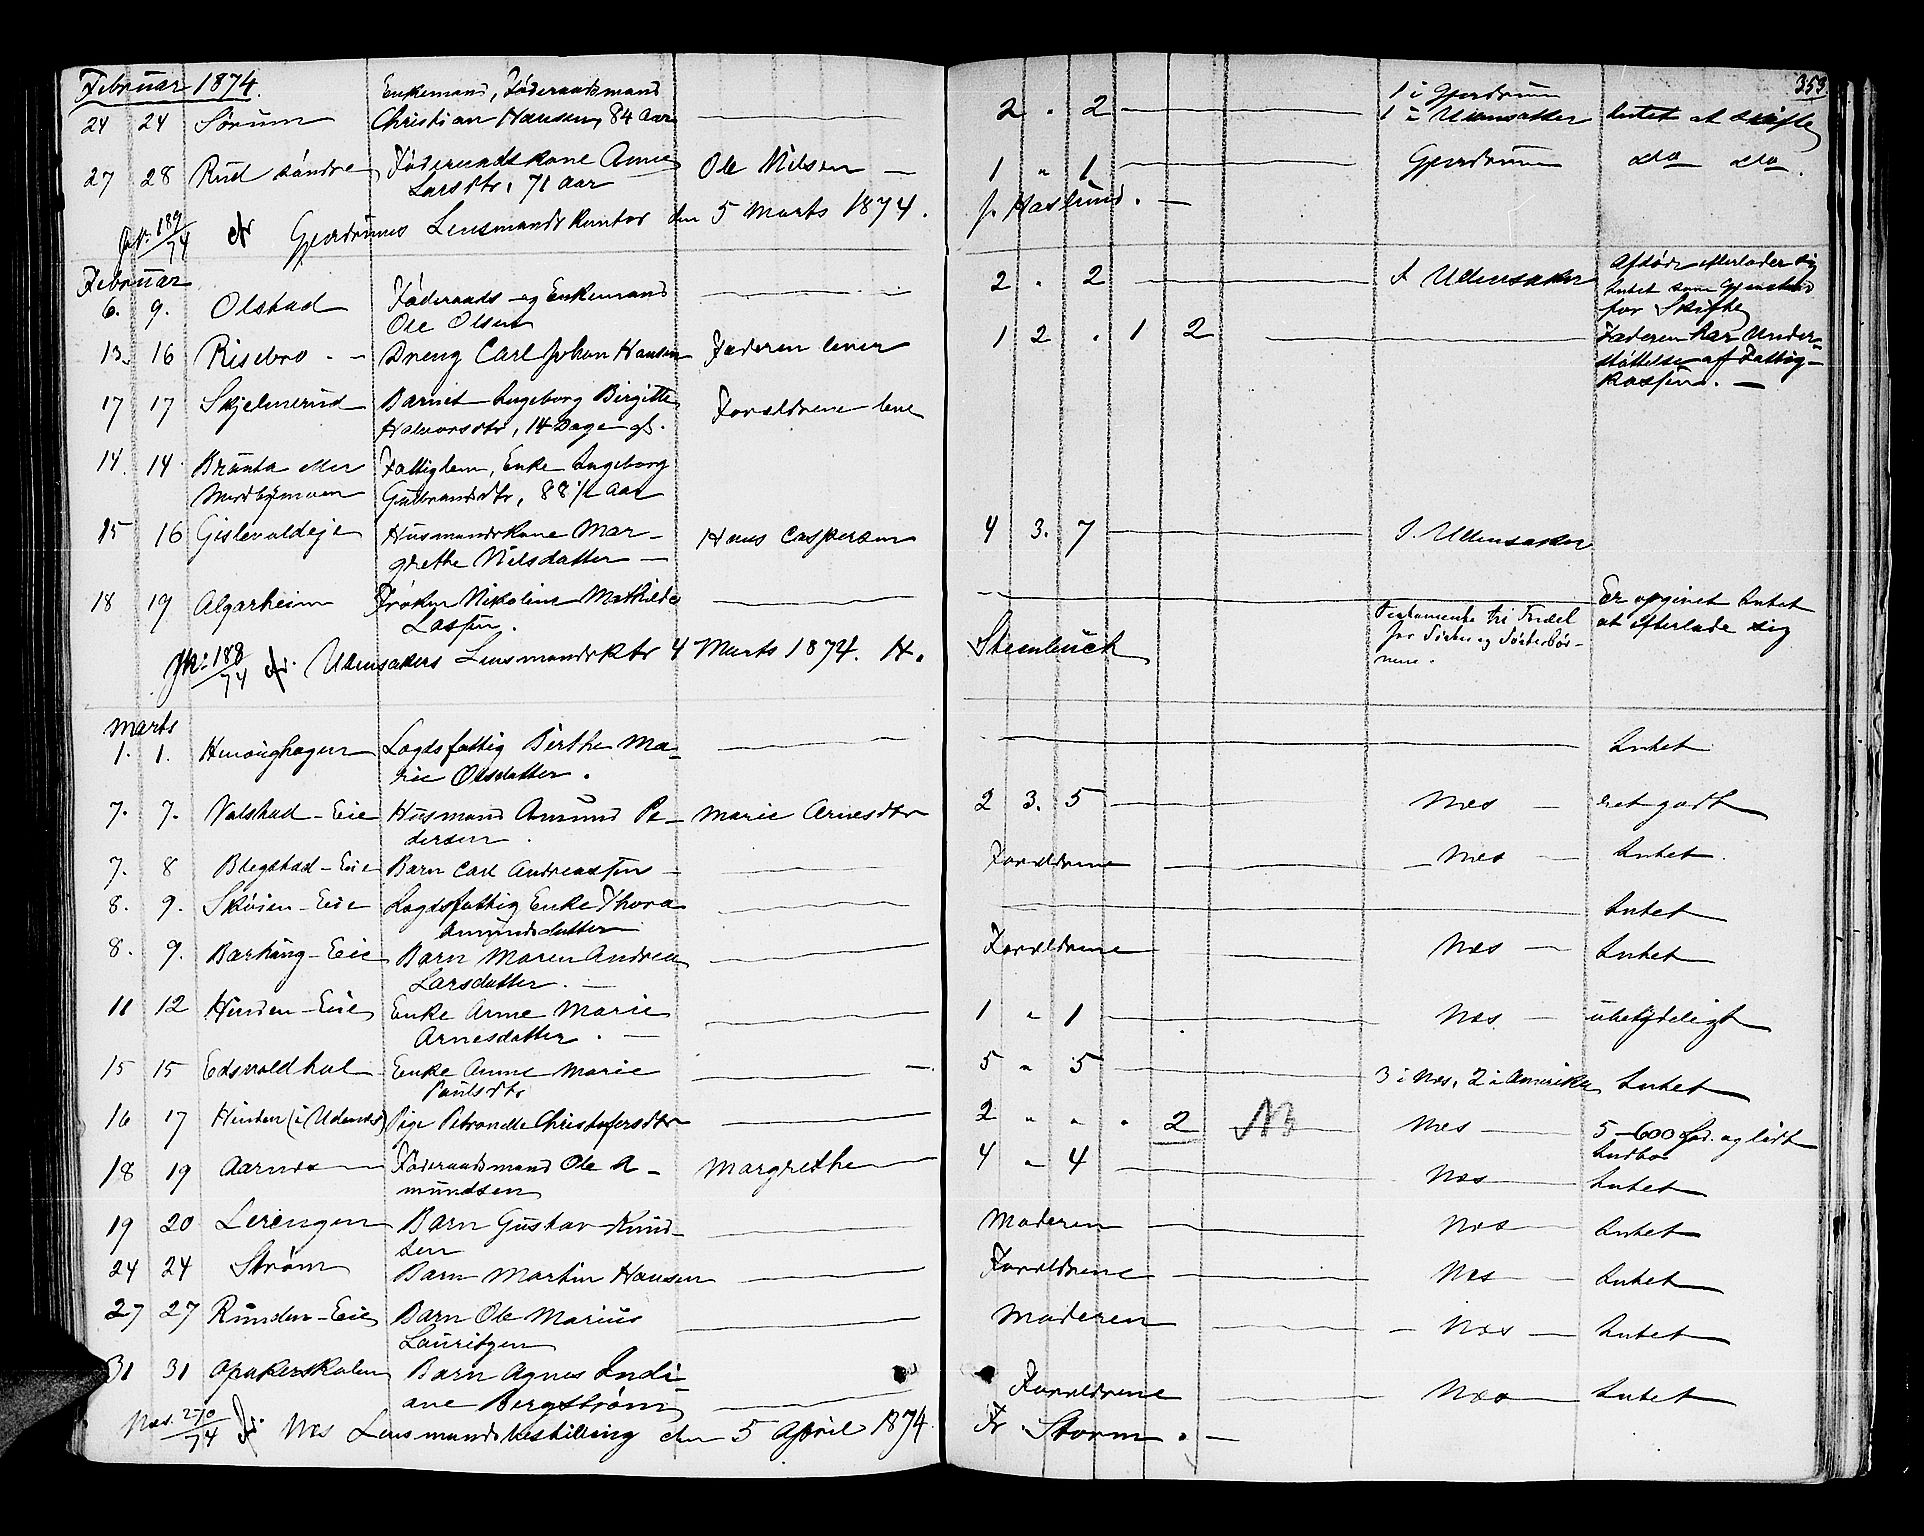 353
Februar 1874.
24 24 Sørum Enkemand, Føderaadsmand Christian Hansen, 84 Aar — 2 „ 2 — 1 i Gjerdrum 1 i Ullensaker Intet at skifte
27 28 Rud søndre Føderaadskone Anne Larsdtr, 71 Aar Ole Nilsen — 1 „ 1 — Gjerdrum do do.
189/74 Gjerdrums Lensmandskontor den 5 Marts 1874. Haslund. —
Februar
6. 9. Olstad Føderaads og Enkemand Ole Olsen — 2 „ 2 — Ullensaker Afdøde efterlader sig Intet som Gjenstand for Skifte
13. 16 Risebro — Dreng Carl Johan Hansen Faderen lever 1 2 . 1 2 — Faderen har Understøttelse af Fattigkassen. —
17 17 Skjelmerud Barnet Ingeborg Birgitte Halvorsdtr, 14 Dage gl. Forældrene leve
14. 14 Brånta eller Fattiglem, Enke Ingeborg Gulbrandsdtr, 88½ Aar
15 16 Gislevoldeje Husmandskone Margrethe Nilsdatter — Hans Caspersen 4 3. 7 — I Ullensaker
18 19 Algarheim Frøken Nikoline Mathilde Lassen. — Testamente til Fordel for Søster og Søsterbørnene. Er opgivet Intet at efterlade sig
188/74 Ullensakers Lensmandsktr 4 Marts 1874. H. Steenbuch
Marts
1. 1. Lægdsfattig Berthe Marie Olsdatter. — Intet
7. 7. Valstad-Eie Husmand Amund Pedersen. Marie Arnesdtr 2 3. 5 — Nes — et godt
7. 8 Blegstad-Eie Barn Carl Andreassen — Forældrene — Nes — Intet.
8. 9. Skøien-Eie Lægdsfattig Enke Thora Amundsdatter — Intet
8. 9. Barhaug-Eie Barn Maren Andrea Larsdatter. — Forældrene Nes — Intet
11 12 Henden-Eie Enke Anne Marie Arnesdatter. — 1 „ 1 — Nes — ubetydeligt
15 15 Eidsvoldhul Enke Anne Marie Paulsdtr — 5 „ 5 — 3 i Nes, 2 i Amerika Intet
16 17 Henden (i Udenes) Pige Petronelle Christofersdtr 2 „ „ . 2 NB Nes — 5-600 Spd. og lidt Indbo
18 19 Aarnes Føderaadsmand Ole Amundsen Margrethe 4 „ 4 — Nes — Intet
19 20 Lerengen Barn Gustav Knudsen — Moderen — Nes — Intet
24 24 Strøm Barn Martin Hansen — Forældrene — Nes — Intet
27 27 Runden-Eie Barn Ole Marius Lauritzen — Moderen — Nes — Intet
31 31 Opakerskolen Barn Agnes Indiane Bergstrøm — Forældrene — Nes — Intet
Nes. 270/74 Nes Lensmandsbestilling den 5 April 1874. Fr Storm. —